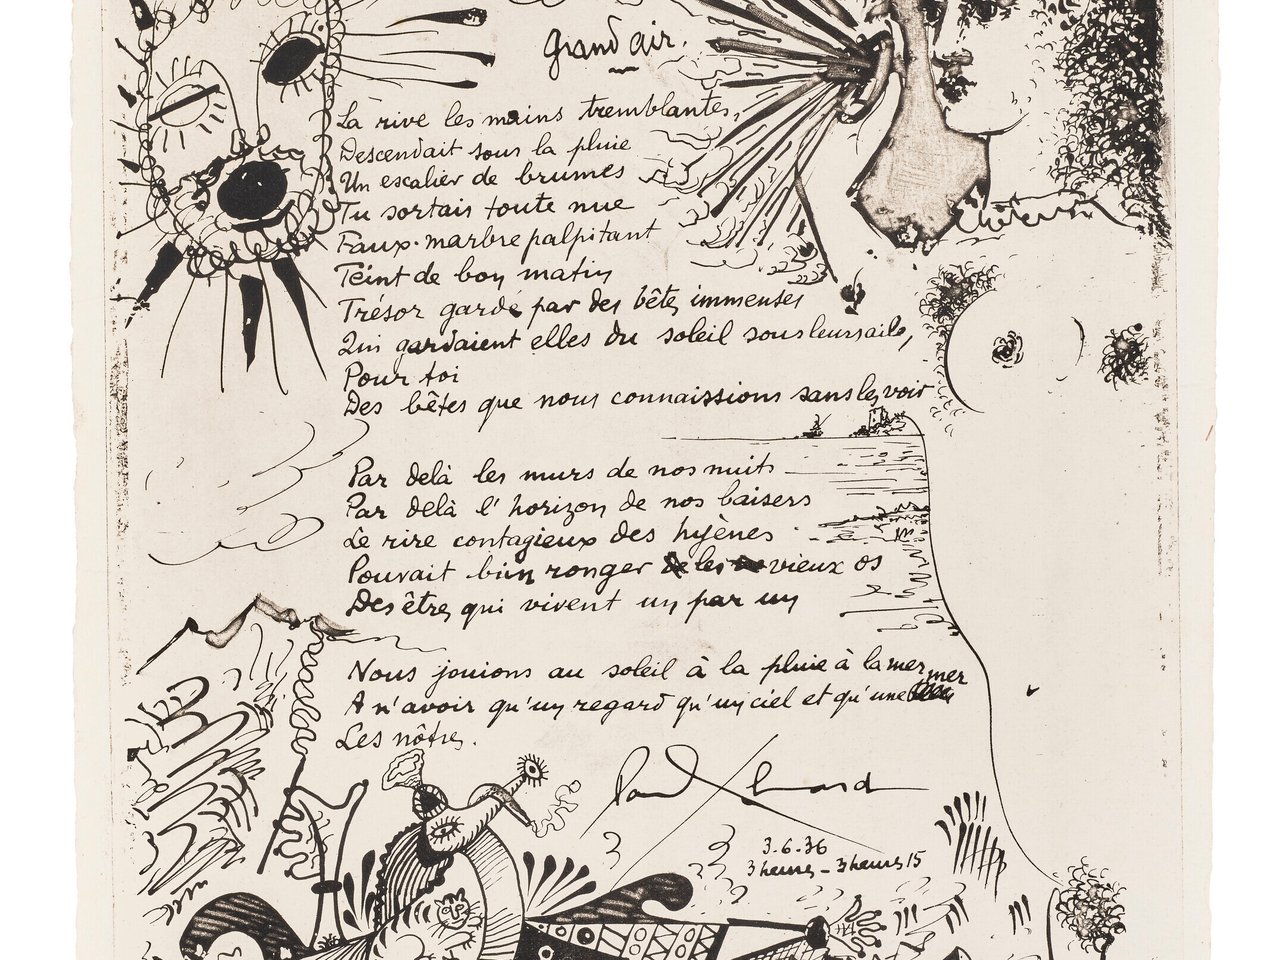 Grand air.
La rive les mains tremblantes,
Descendait sous la pluie
Un escalier de brumes
Tu sortais toute nue
Faux marbre palpitant
Teint de bon matin
Trésor gardé par des bêtes immenses
Qui gardaient elles du soleil sous leurs ailes,
Pour toi
Des bêtes que nous connaissions sans les voir
Par delà les murs de nos nuits
Par delà l'horizon de nos baisers
Le rire contagieux des hyènes
Pouvait bien ronger les vieux os
Des êtres qui vivent un par un
Nous jouions au soleil à la pluie à la mer
A n'avoir qu'un regard qu'un ciel et qu'une mer
Les nôtres.
Paul Eluard
3.6.36
3 heures – 3 heures 15